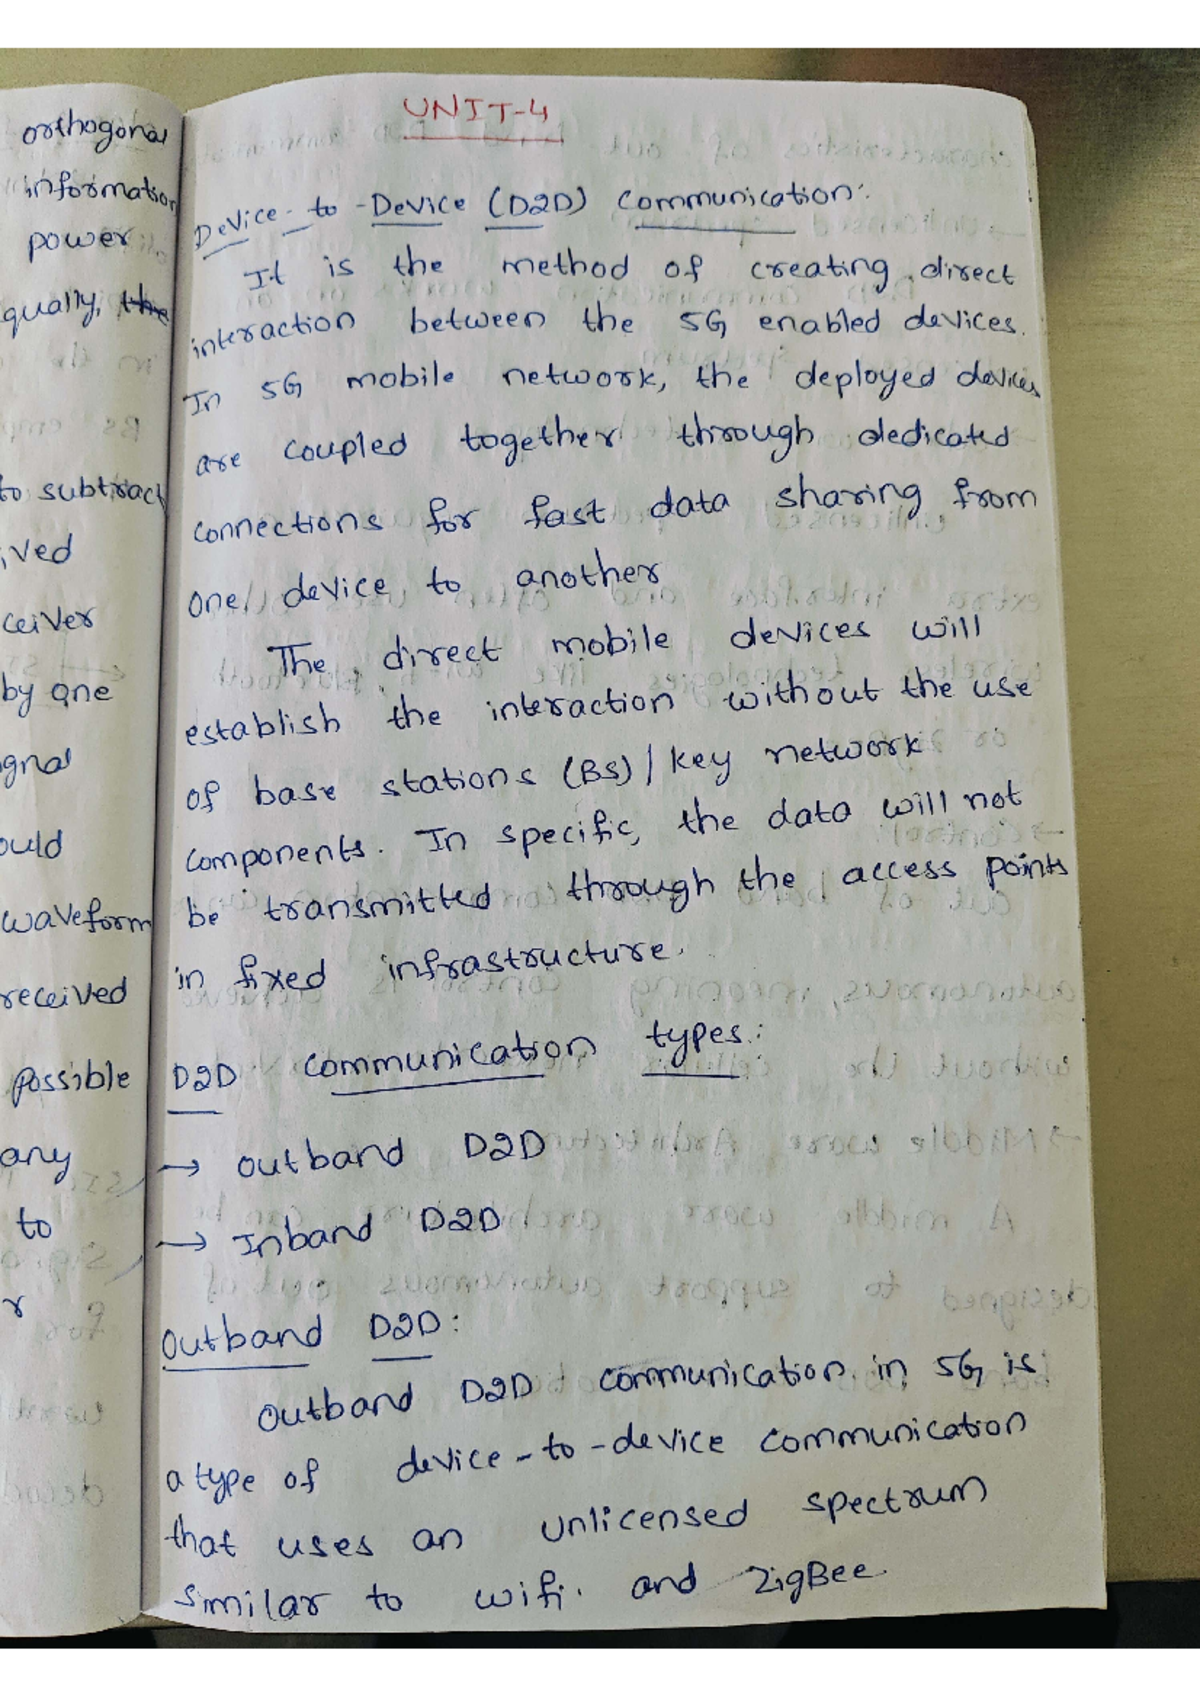 orthogonal
information
power
qually, the
to subtract
ived
ceiver
by one
gnal
ould
waveform
received
possible
any
to
r
UNIT-4
Device-to-Device (D2D) Communication:
It is the method of creating direct
interaction between the 5G enabled devices.
In 5G mobile network, the deployed devices
are coupled together through dedicated
connections for fast data sharing from
one device to another
The direct mobile devices will
establish the interaction without the use
of base stations (BS) / key network
components. In specific, the data will not
be transmitted through the access points
in fixed infrastructure.
D2D communication types:
→ outband D2D
→ Inband D2D
Outband D2D:
Outband D2D communication in 5G is
a type of device-to-device communication
that uses an unlicensed spectrum
similar to wifi. and ZigBee